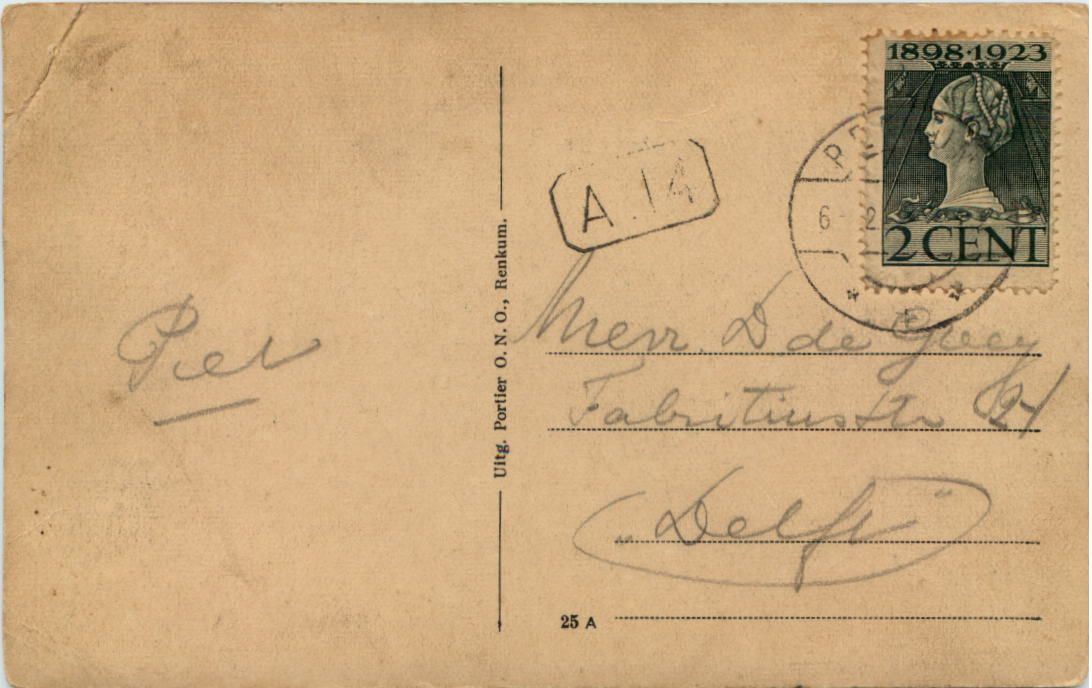 1898·1923
2 CENT
A.14
6 2
Uitg. Portier O. N. O., Renkum.
Piet
Mevr. D de
Fabritiusstr 21
„Delft"
25 A